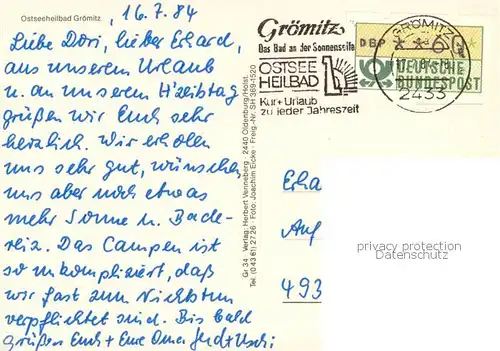 Ostseeheilbad Grömitz
16.7.84
Liebe Dori, lieber Erhard,
aus unserem Urlaub
u. an unserem Hochzeitstag
grüßen wir Euch sehr
herzlich. Wir erholen
uns sehr gut, wünschen
uns aber noch etwas
mehr Sonne u. Bade-
reiz. Das Campen ist
so unkompliziert, daß
wir fast zum Nichtstun
verpflichtet sind. Bis bald
grüßen Euch + Eure Oma
Gr 34 · Verlag: Herbert Venneberg · 2440 Oldenburg/Holst.
Tel. (0 43 61) 27 26 · Foto: Joachim Eicke · Freig.-Nr. SH 389-1520
Grömitz
Das Bad an der Sonnenseite
OSTSEE
HEILBAD
Kur + Urlaub
zu jeder Jahreszeit
DBP
DEUTSCHE
BUNDESPOST
GRÖMITZ
2433
Erha
Auf
493
privacy protection